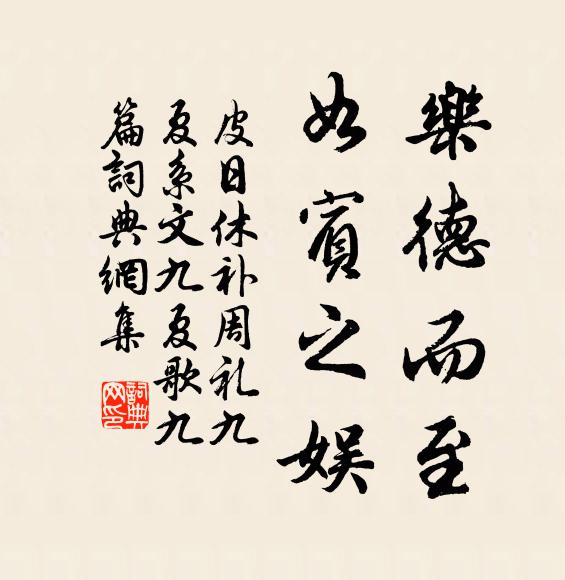 樂德而至
如賓之娱
皮日休补周礼九
夏系文九夏歌九
篇詞典網集
詞典
网印